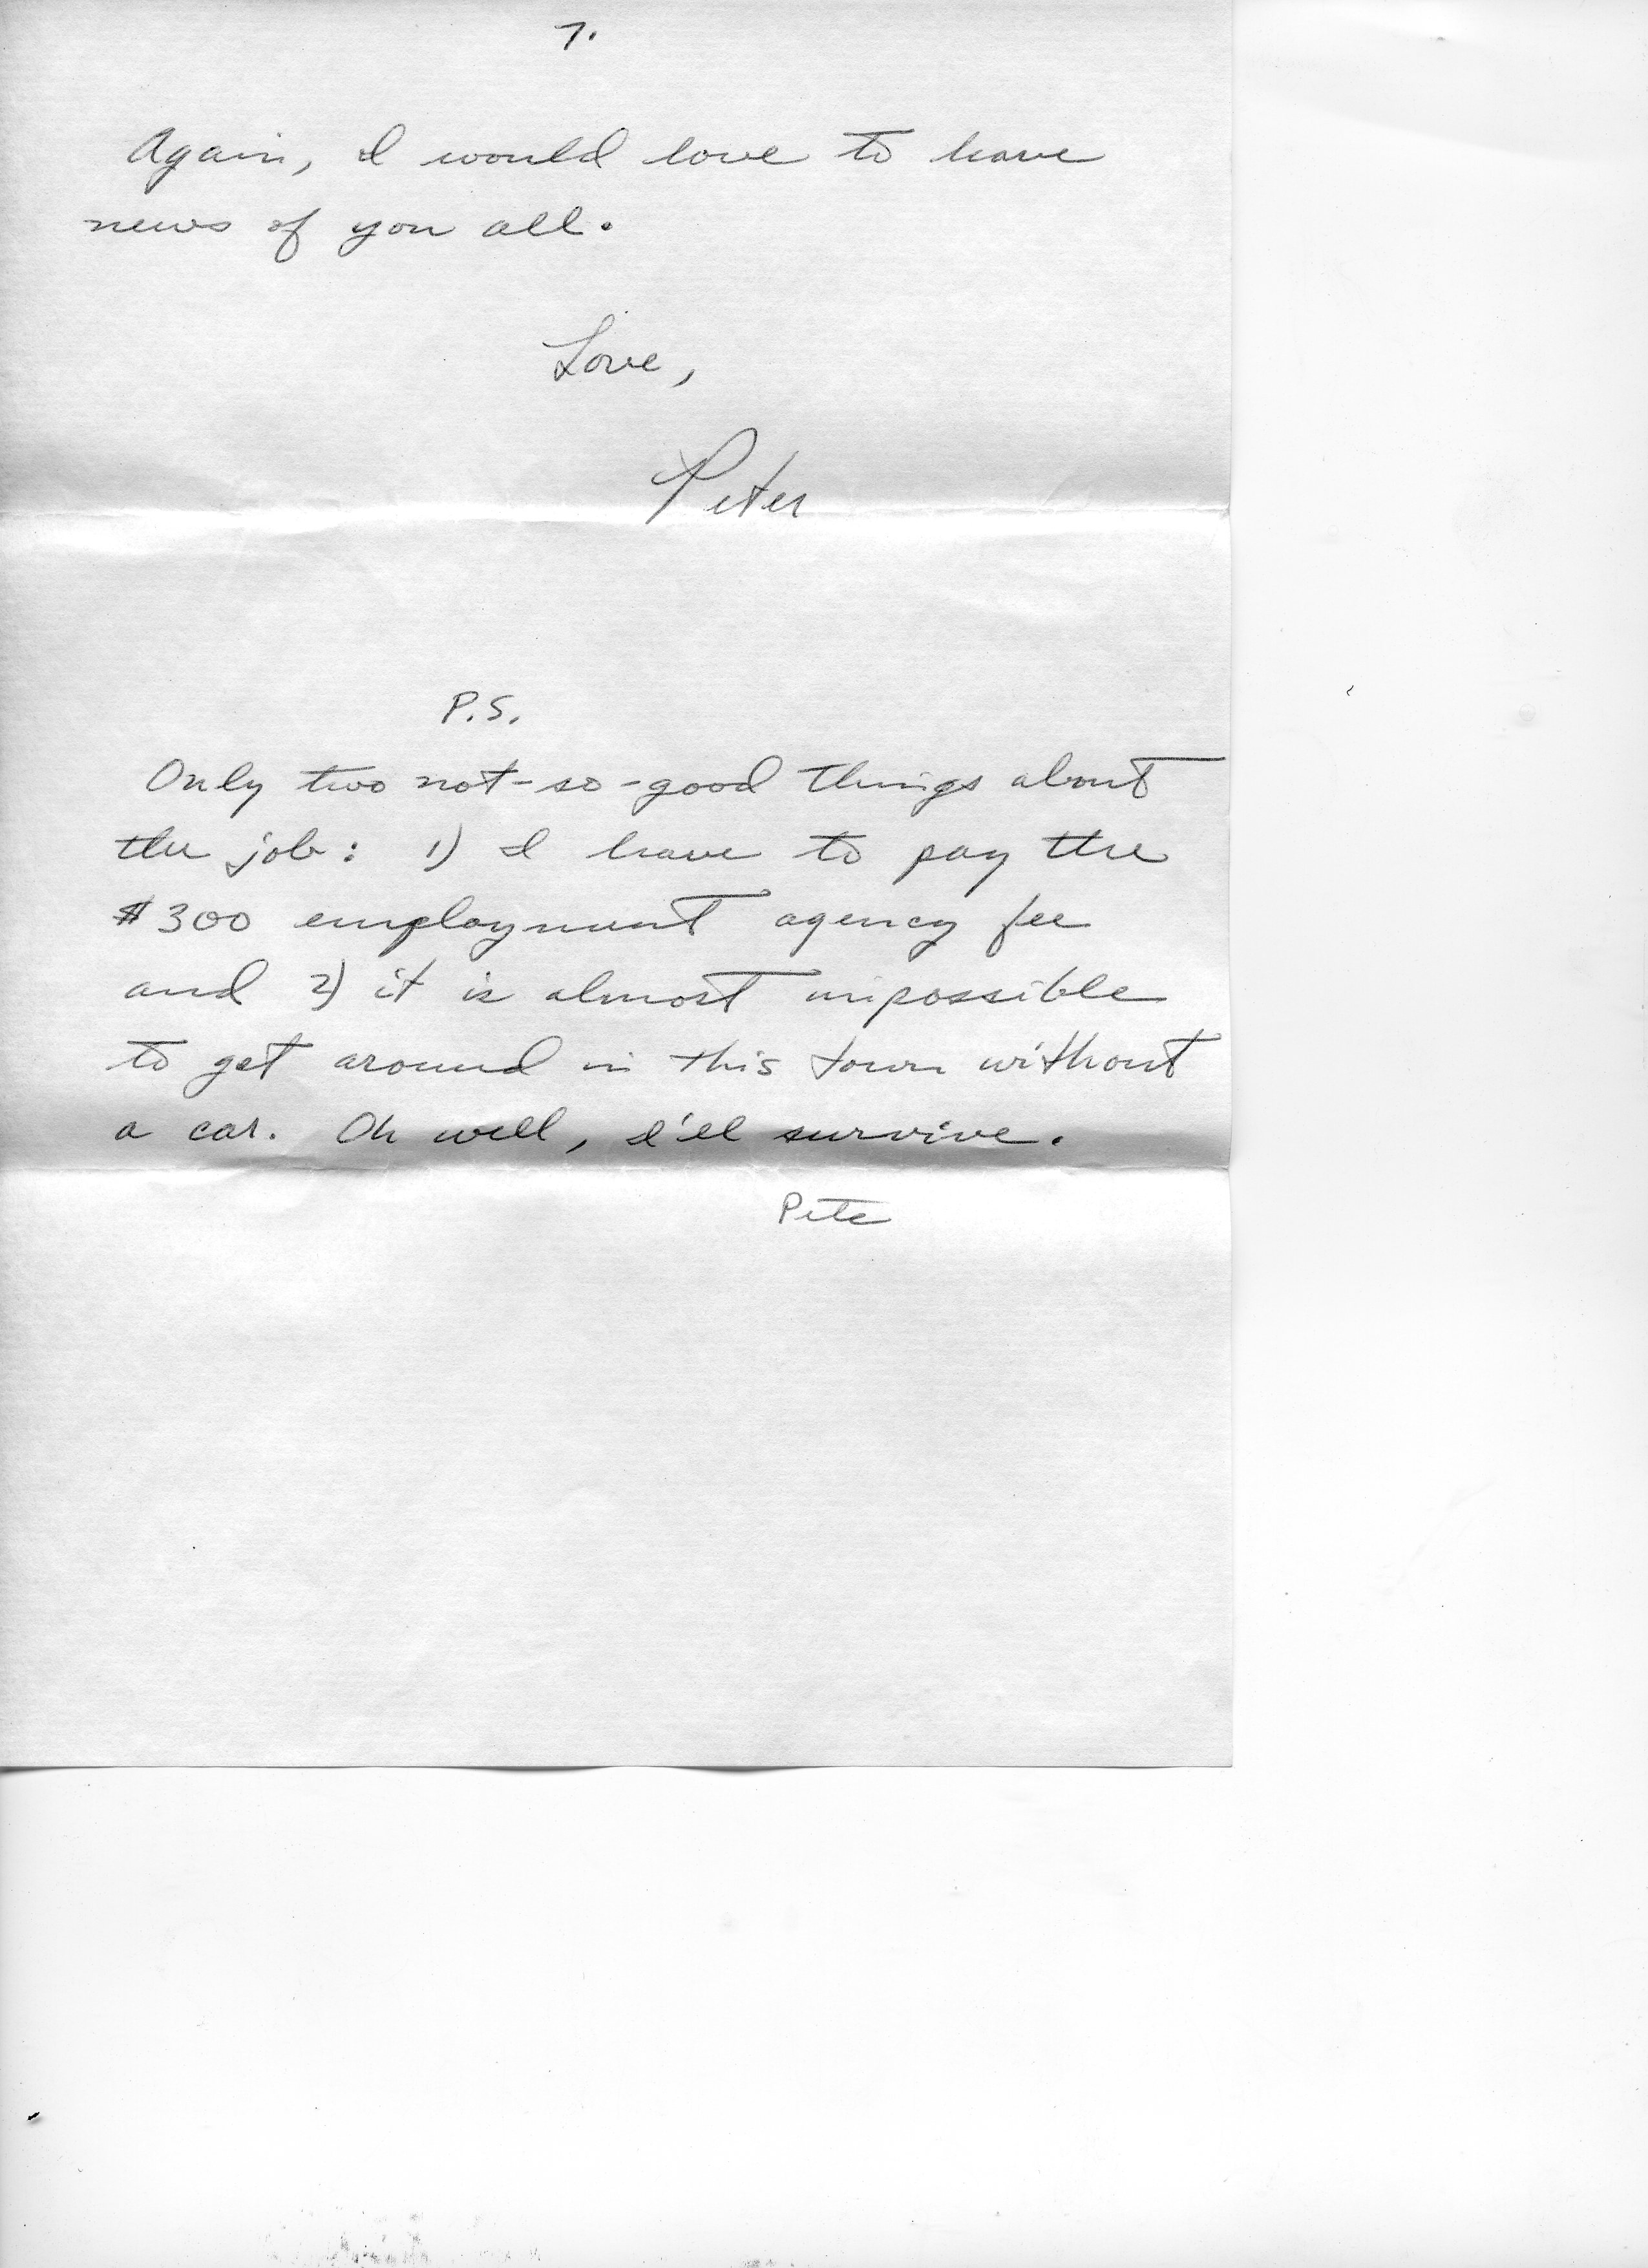 7.
Again, I would love to have
news of you all.
Love,
Peter
P.S.
Only two not-so-good things about
the job: 1) I have to pay the
$300 employment agency fee
and 2) it is almost impossible
to get around in this town without
a car. Oh well, I'll survive.
Pete